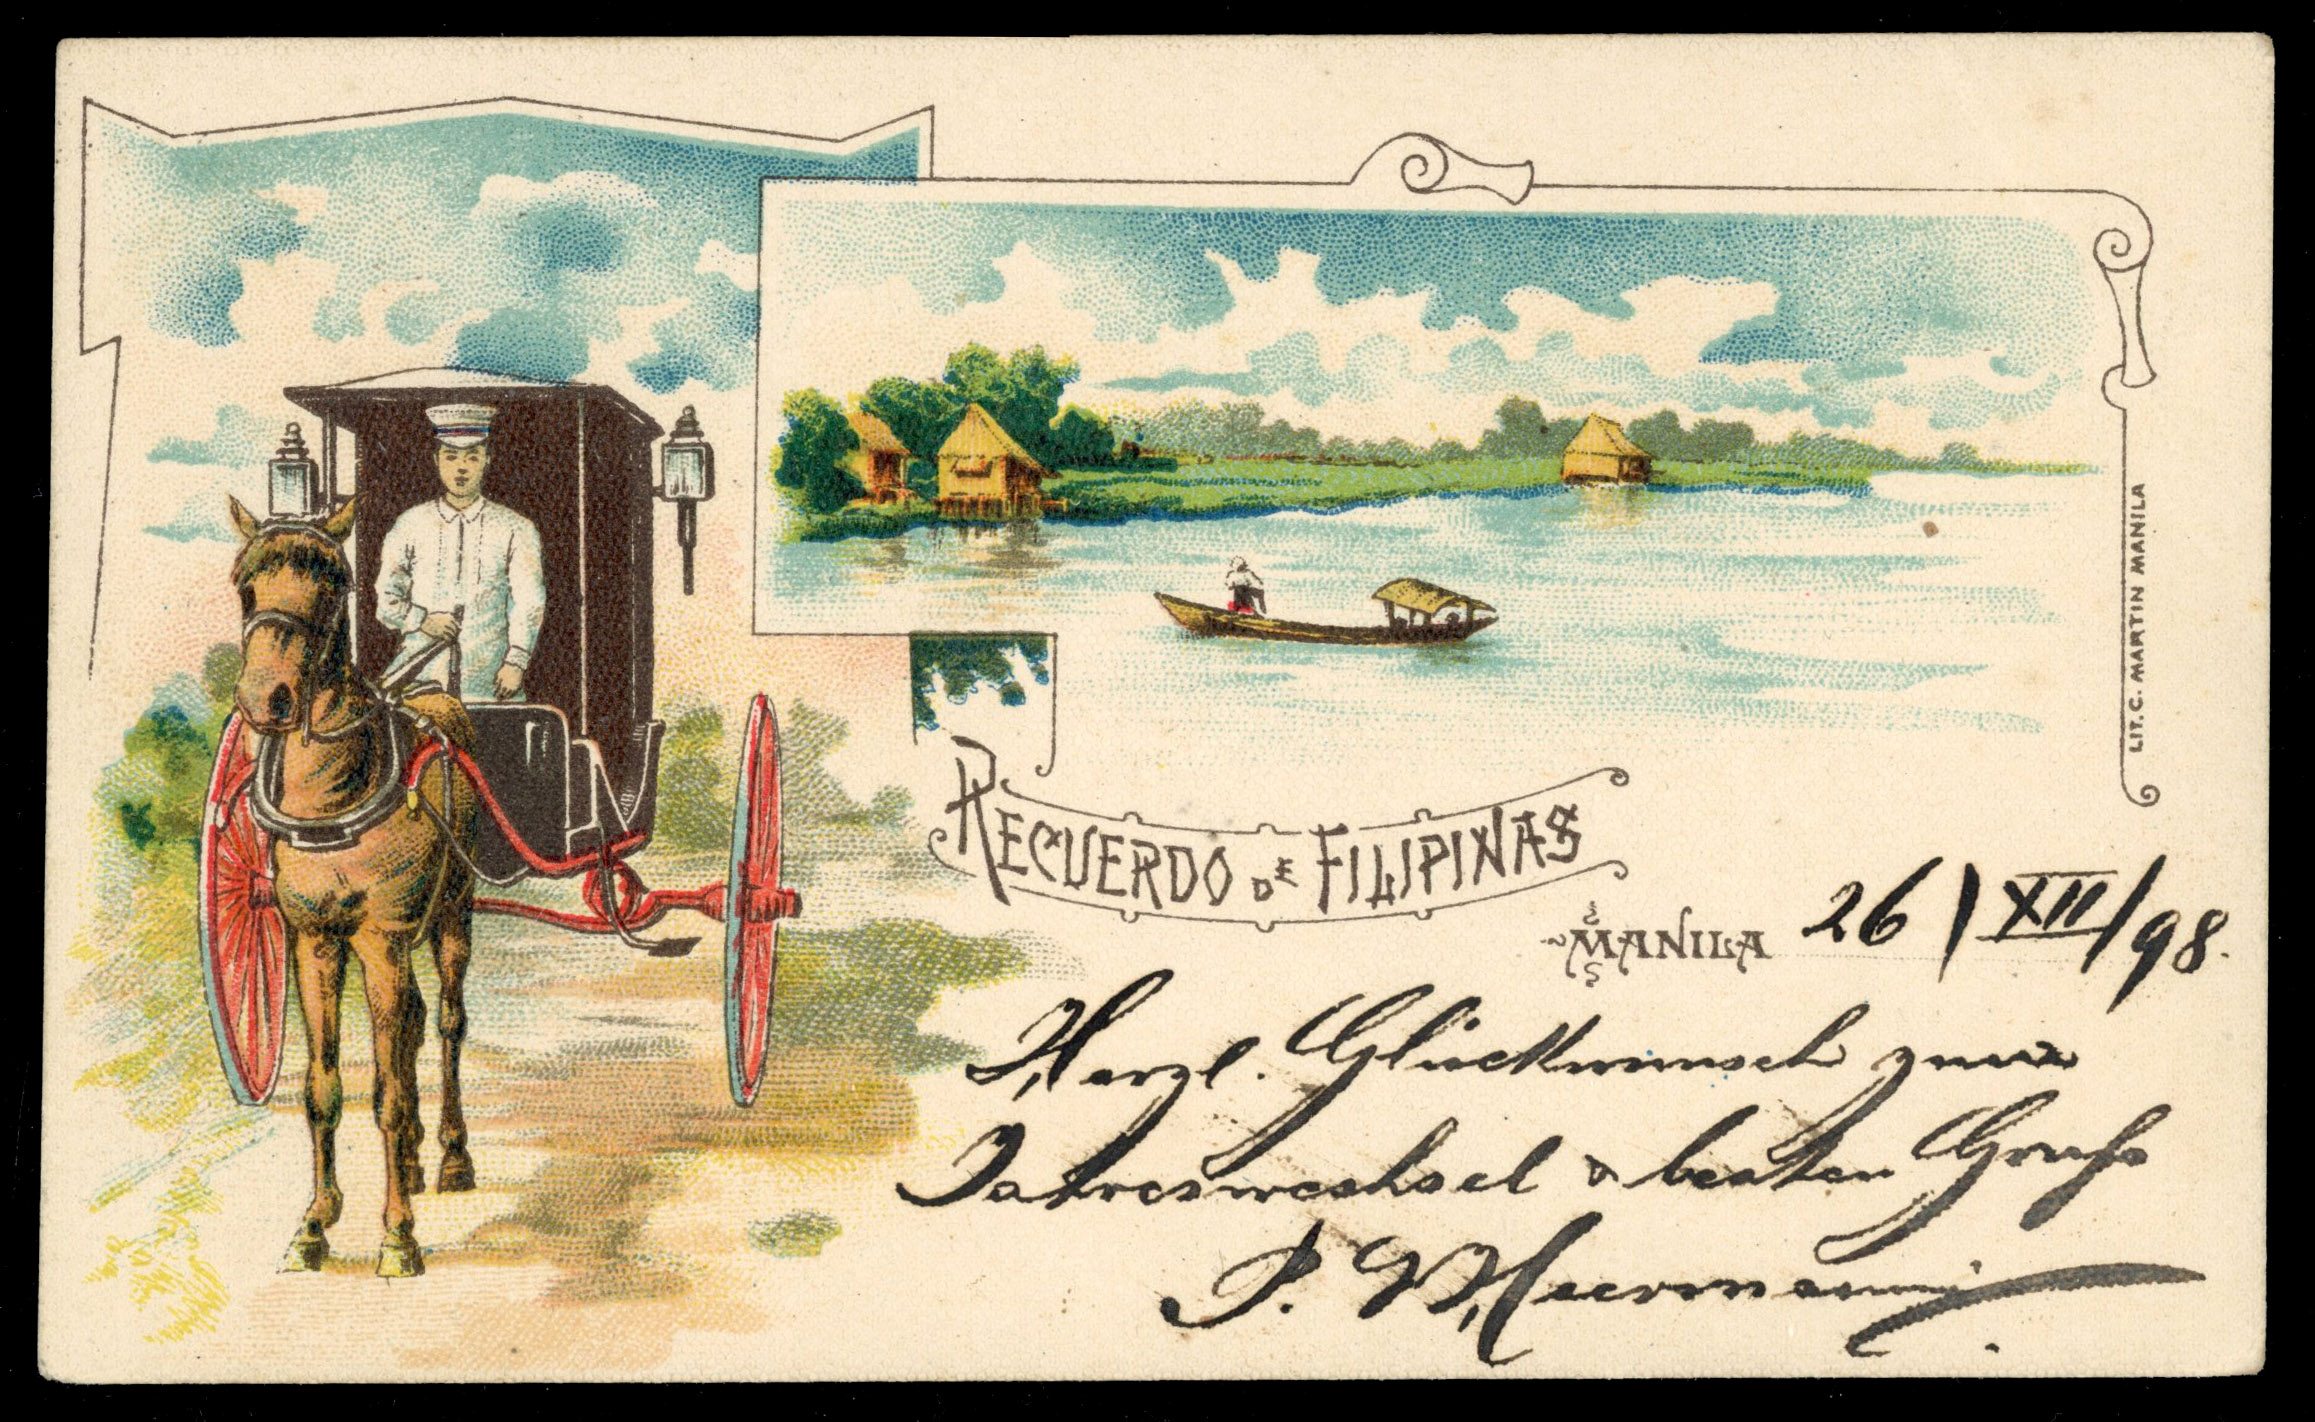 LIT. C. MARTIN MANILA
RECUERDO DE FILIPINAS
MANILA 26/XII/98.
Herzl. Glückwunsch zum
Jahreswechsel & besten Gruß